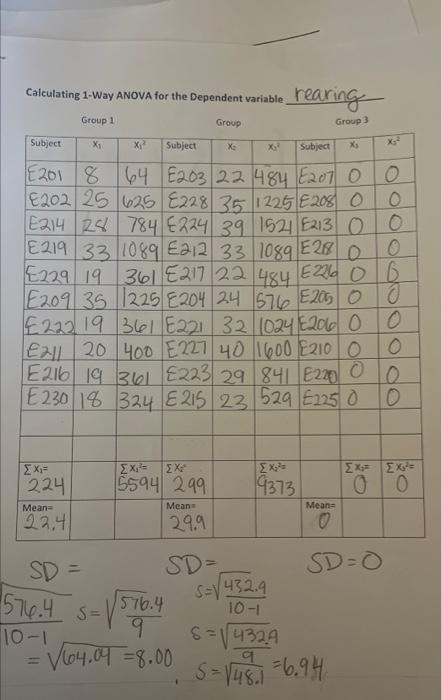 Calculating 1-Way ANOVA for the Dependent variable rearing
Group 1 Group Group 3
Subject X₁ X₁² Subject X₂ X₂² Subject X₃ X₃²
E201 8 64 E203 22 484 E207 0 0
E202 25 625 E228 35 1225 E208 0 0
E214 28 784 E224 39 1521 E213 0 0
E219 33 1089 E212 33 1089 E218 0 0
E229 19 361 E217 22 484 E226 0 0
E209 35 1225 E204 24 576 E205 0 0
E222 19 361 E221 32 1024 E206 0 0
E211 20 400 E227 40 1600 E210 0 0
E216 19 361 E223 29 841 E220 0 0
E230 18 324 E215 23 529 E225 0 0
ΣX₁= ΣX₁²= ΣX₂= ΣX₂²= ΣX₃= ΣX₃²=
224 5594 299 9373 0 0
Mean= Mean= Mean=
22.4 29.9 0
SD = SD= SD=0
√576.4/10-1 S=√576.4/9 S=√432.9/10-1
= √64.04 =8.00 S=√432.9/9
S=√48.1 =6.94